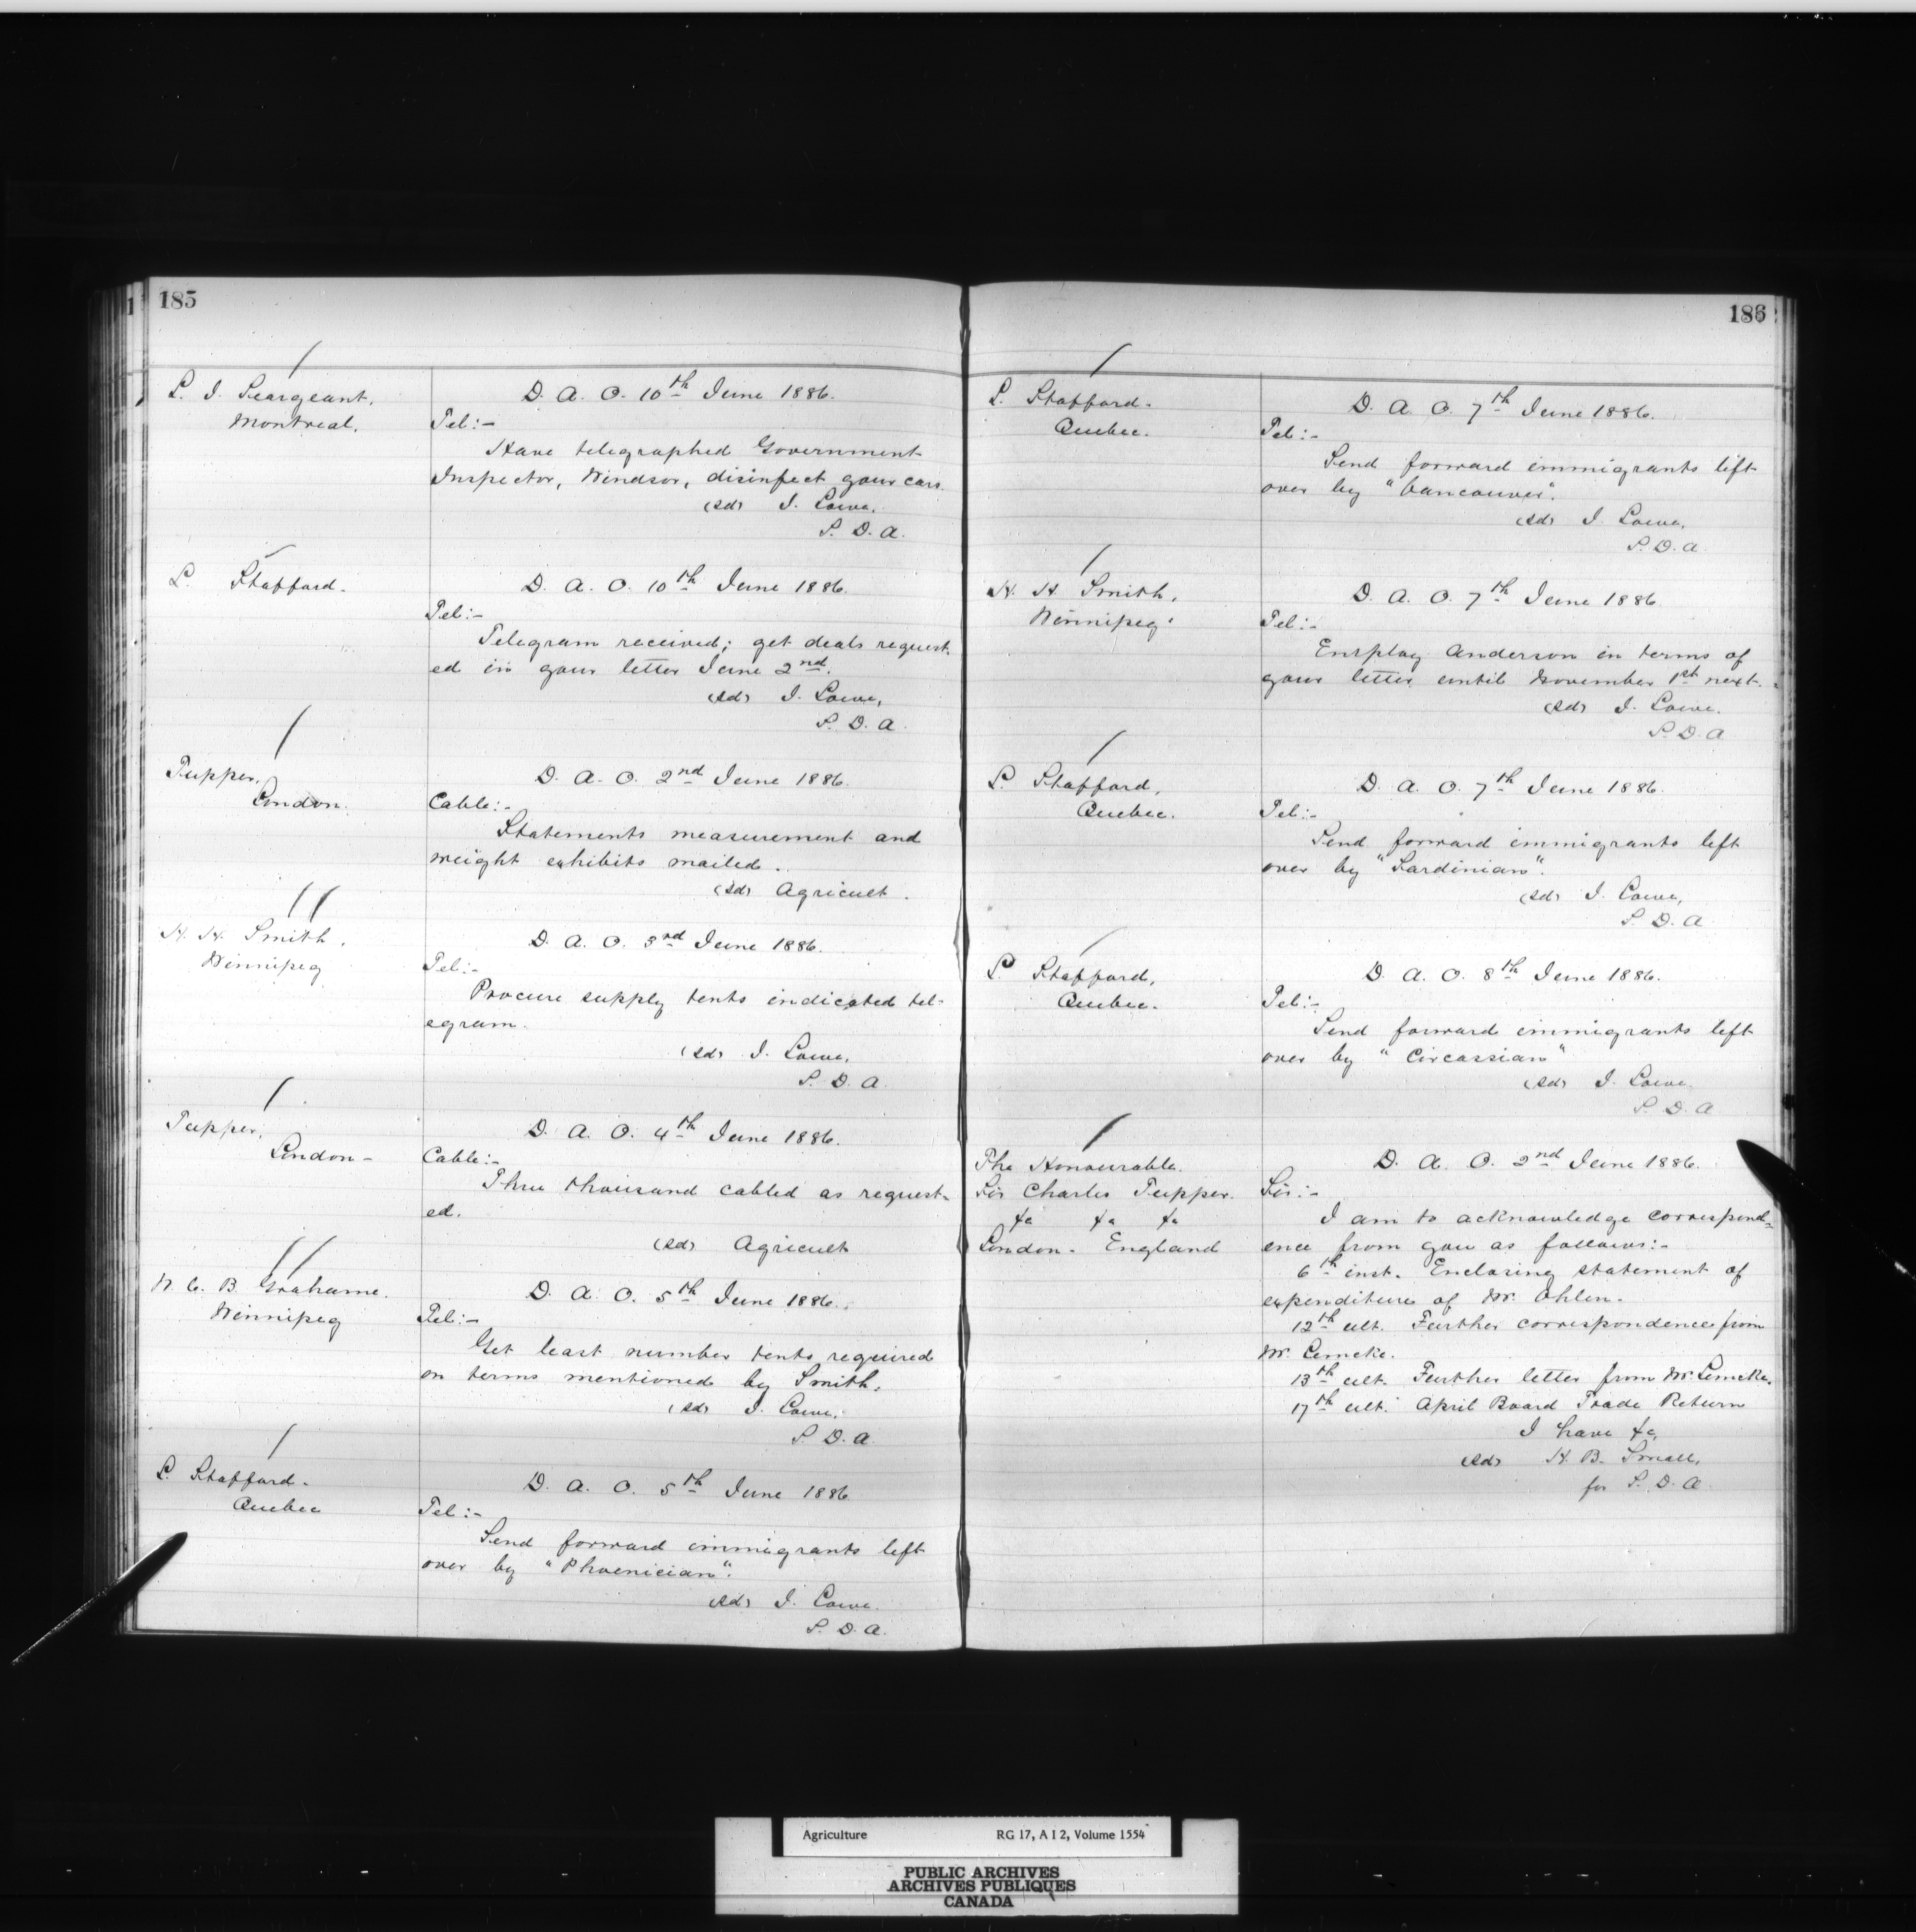 185
L. J. Seargeant,
Montreal.
D. A. O. 10th June 1886.
Tel:-
Have telegraphed Government
Inspector, Windsor, disinfect your cars.
(sd) J. Lowe,
S. D. A.
L. Stafford.
D. A. O. 10th June 1886.
Tel:-
Telegram received; get deals request-
ed in your letter June 2nd.
(sd) J. Lowe,
S. D. A.
Tupper,
London.
D. A. O. 2nd June 1886.
Cable:-
Statements measurement and
weight exhibits mailed.
(sd) Agricult.
H. H. Smith,
Winnipeg
D. A. O. 3rd June 1886.
Tel:-
Procure supply tents indicated tel-
egram.
(sd) J. Lowe,
S. D. A.
Tupper,
London-
D. A. O. 4th June 1886.
Cable:-
Three thousand cabled as request-
ed.
(sd) Agricult
W. C. B. Grahame.
Winnipeg
D. A. O. 5th June 1886.
Tel:-
Get least number tents required
on terms mentioned by Smith.
(sd) J. Lowe,
S. D. A.
L. Stafford.
Quebec
D. A. O. 5th June 1886.
Tel:-
Send forward immigrants left
over by "Phoenician".
(sd) J. Lowe.
S. D. A.
186
L. Stafford.
Quebec.
D. A. O. 7th June 1886.
Tel:-
Send forward immigrants left
over by "Vancouver".
(sd) J. Lowe,
S. D. A
H. H. Smith,
Winnipeg.
D. A. O. 7th June 1886
Tel:-
Employ Anderson in terms of
your letter until November 1st next.
(sd) J. Lowe.
S. D. A
L. Stafford,
Quebec.
D. A. O. 7th June 1886.
Tel:-
Send forward immigrants left
over by "Sardinian".
(sd) J. Lowe,
S. D. A
L. Stafford,
Quebec.
D. A. O. 8th June 1886.
Tel:-
Send forward immigrants left
over by "Circassian"
(sd) J. Lowe
S. D. A
The Honourable.
Sir Charles Tupper.
&c &c &c
London. England
D. A. O. 2nd June 1886.
Sir:-
I am to acknowledge correspond-
ence from you as follows:-
6th inst. Enclosing statement of
expenditure of Mr. Ohlen.
12th ult. Further correspondence from
Mr. Lemcke.
13th ult. Further letter from Mr Lemcke.
17th ult. April Board Trade Return
I have &c,
(sd) H. B. Small,
for S. D. A
Agriculture RG 17, A I 2, Volume 1554
PUBLIC ARCHIVES
ARCHIVES PUBLIQUES
CANADA